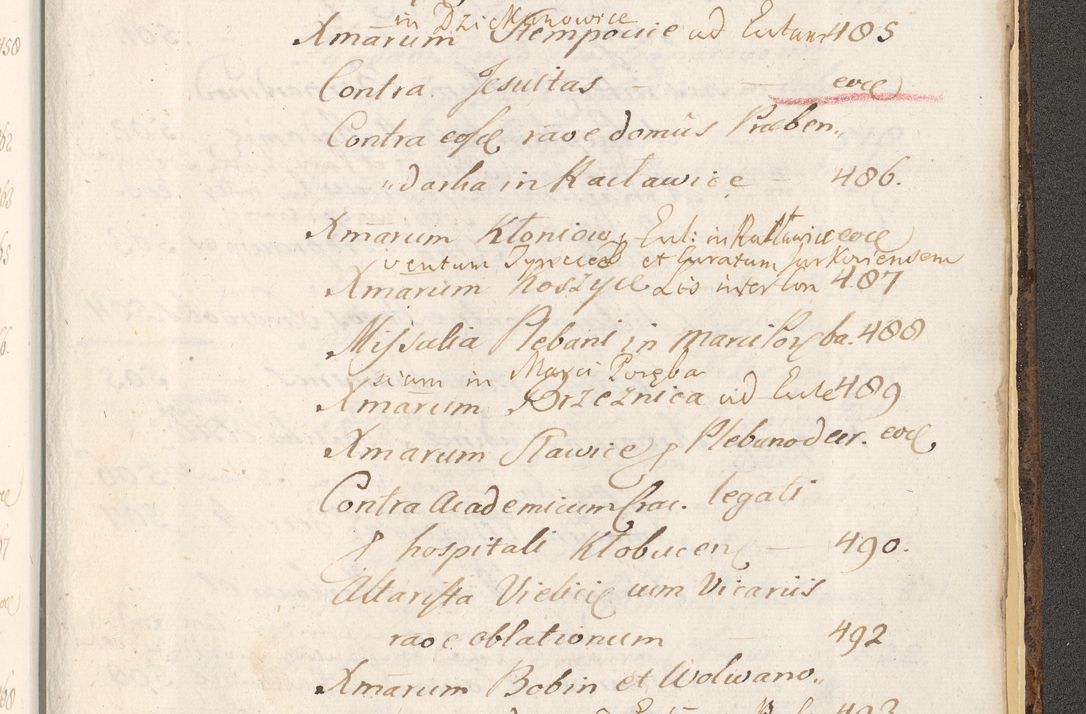 in Dziekanowice
Xmarum Stempocice ad Eccles 485
Contra Jesuitas — eod
Contra eosd raoe domûs Præben,,
,,darha in Racławice — 486.
Xmarum Kłoniow p Eccl: in Racławice eod
ventum Tynecens et Curatum Jurkoviensem
Xmarum Koszyce Lis inter Con 487
Missalia Plebani in marciPoręba. 488
siam in Marci Poręba
Xmarum Brzeźnica ad Eccle 489
Xmarum Sławice p Plebano decr. eod,
Contra Academicum Crac. legati
p hospitali Kłobucen — 490.
Altarista Vielicis cum Vicariis
raoe oblationum — 492
Xmarum Bobin et Wolwano,,
493